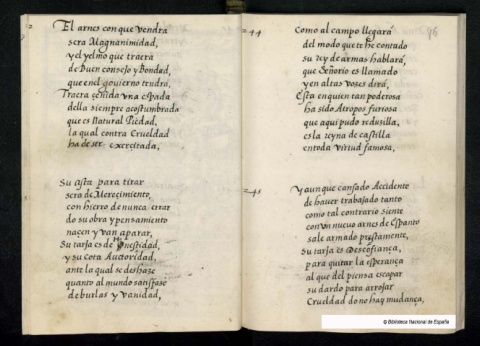 El arnes con que vendra
sera Magnanimidad,
y el yelmo que traera
de Buen consejo y Bondad,
que en el gouierno tendra,
Traera çeñida vna espada
della siempre acostumbrada
que es Natural Piedad,
la qual contra Crueldad
ha de ser exercitada,
Su asta para tirar
sera de Mereçimiento,
con hierro de nunca errar
do su obra y pensamiento
naçen y van aparar,
Su tarja es de Honestidad,
y su cota Auctoridad,
ante la qual se deshaze
quanto al mundo satisfaze
de burlas y vanidad,
44
86
Como al campo llegará
del modo que te he contado
su rey de armas hablara,
que Señorio es llamado
y en altas vozes dira,
Esta en quien tan poderosa
ha sido Atropos furiosa
que aqui pudo reduzilla,
es la reyna de castilla
en toda virtud famosa,
45
Y aunque cansado Accidente
de hauer trabajado tanto
como tal contrario siente
con vn nueuo arnes de Espanto
sale armado prestamente,
Su tarja es Desconfiança,
para quitar la esperança
al que del piensa escapar
su dardo para arrojar
Crueldad do no hay mudança,
© Biblioteca Nacional de España